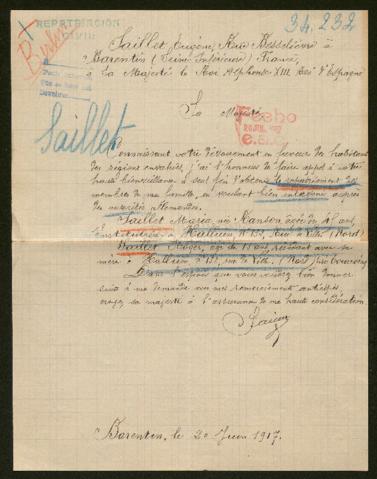 REPATRIACIÓN
CIVIL
34,232
Saillet, Eugène, Rue Desseaux à
Barentin (Seine Inférieure) France,
à Sa Majesté le Roi Alphonse XIII Roi d'Espagne
Sa Majesté
Fecho
Saillet
Connaissant votre dévouement en faveur des habitants
des régions envahies, j'ai l'honneur de faire appel à votre
haute bienveillance à seul fin d'obtenir le rapatriement des
membres de ma famille, en voulant bien intervenir auprès
des autorités Allemandes.
Saillet Maria, née Hanson âgée de 41 ans,
à Halluin, N° 153, Rue de Lille (Nord)
Saillet Roger, âgé de 13 ans, résidant avec sa
mère à Halluin, N° 153, rue de Lille. (Nord) près Tourcoing
Dans l'espoir que vous voudrez bien donner
suite à ma demande avec mes remerciements anticipés,
croyez sa majesté à l'assurance de ma haute considération
Barentin, le 20 Juin 1917.